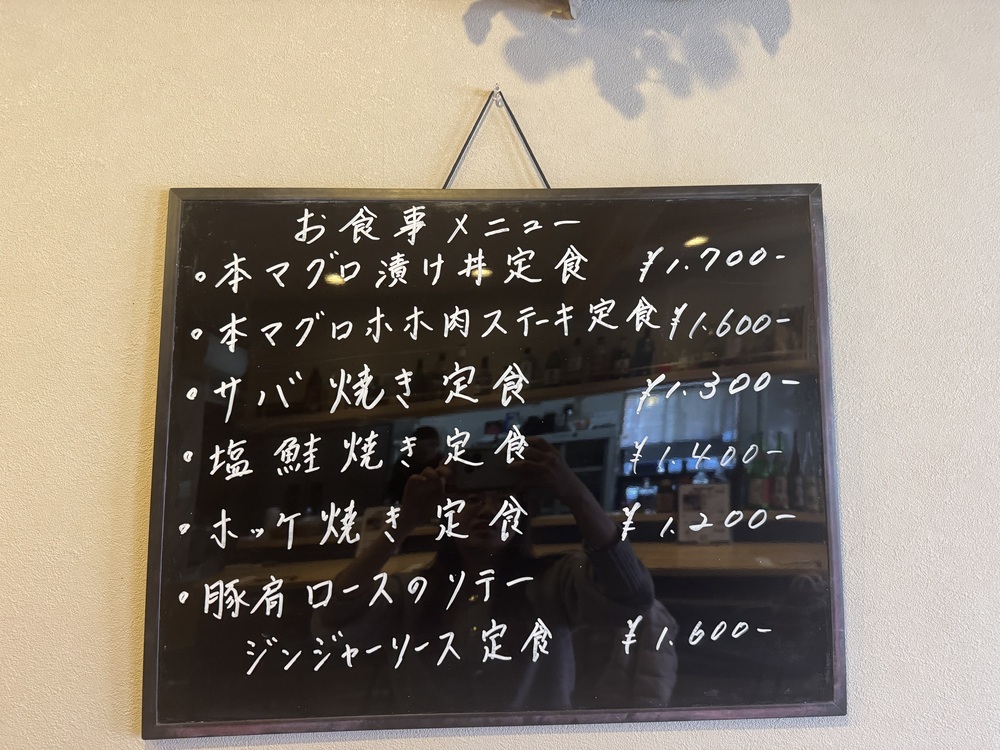 お食事メニュー
・本マグロ漬け丼定食 ¥1.700-
・本マグロホホ肉ステーキ定食 ¥1.600-
・サバ焼き定食 ¥1.300-
・塩鮭焼き定食 ¥1.400-
・ホッケ焼き定食 ¥1.200-
・豚肩ロースのソテー
ジンジャーソース定食 ¥1.600-